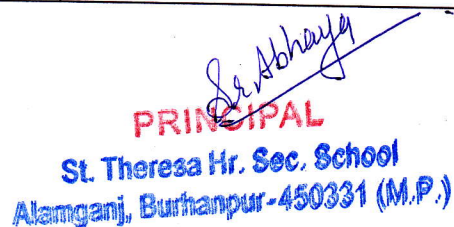 Sr. Abhaya
PRINCIPAL
St. Theresa Hr. Sec. School
Alamganj, Burhanpur-450331 (M.P.)